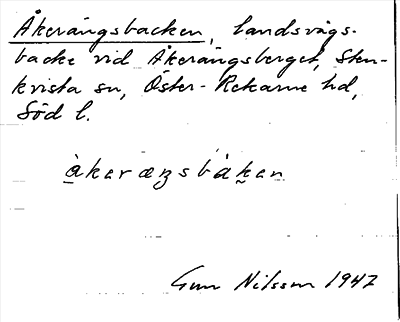 Åkerängsbacken, landsvägs-
backe vid Åkerängsberget, Sten-
kvista sn, Öster-Rekarne hd,
Söd l.
åkeræŋsbaken
Gun Nilsson 1947